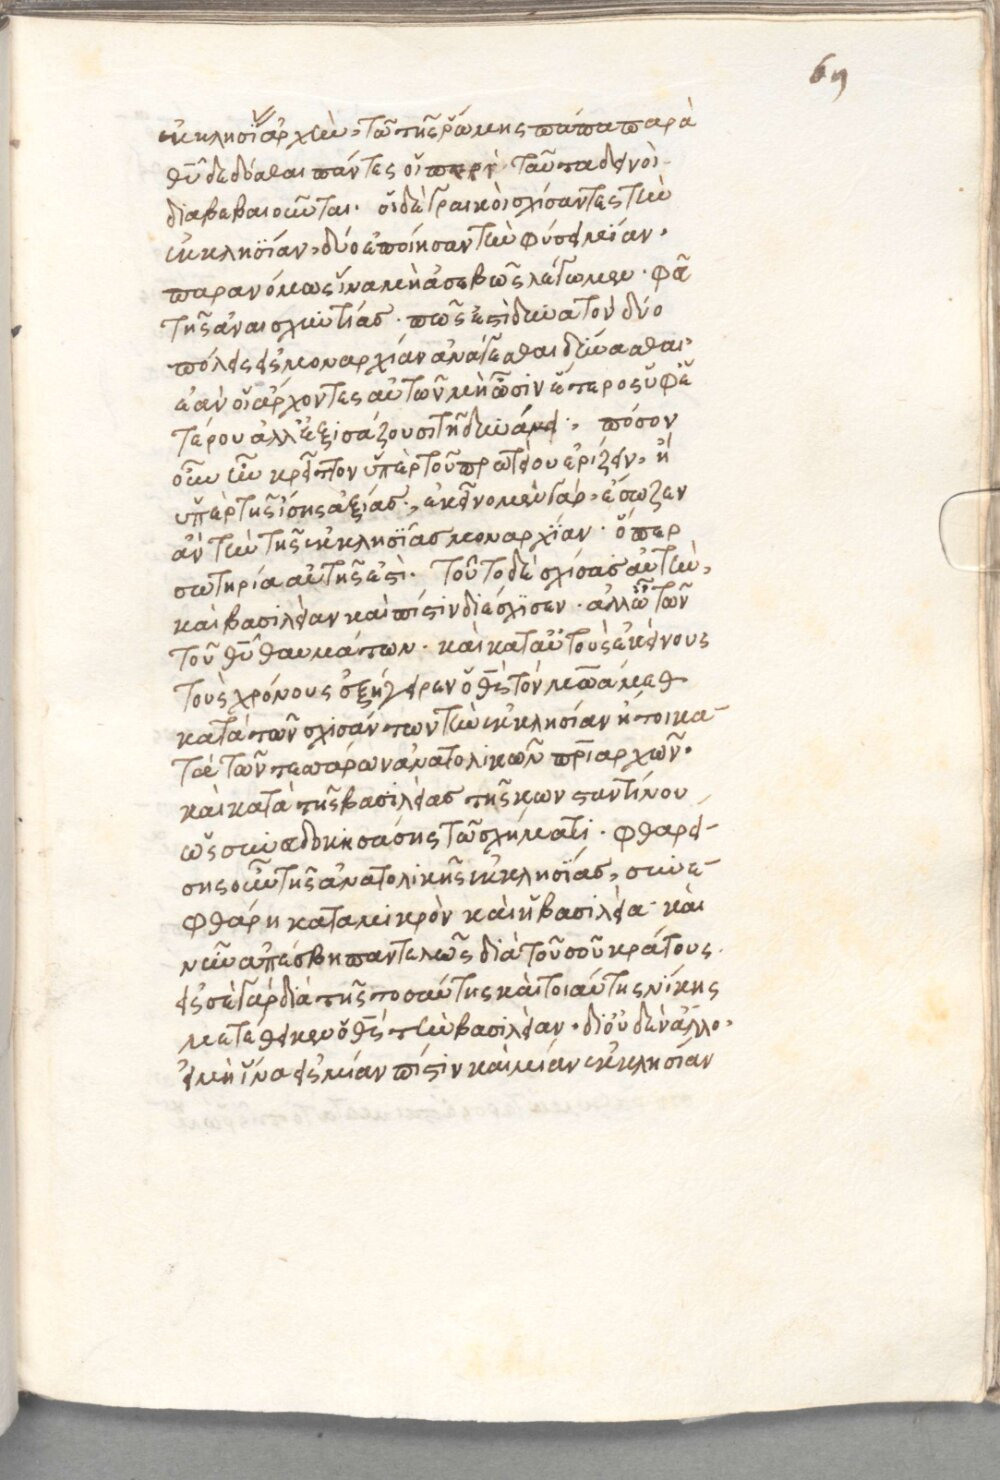 69
ἐκκλησϊαρχίαν, τῶ τῆς ῥώμης πάπα παρὰ
θῦ δεδόσθαι πάντες οἵ περὶ ταῦτα δεινοὶ
διαβεβαιοῦνται. οἵ δὲ γραικοὶ σχίσαντες τὴν
ἐκκλησΐαν, δύο ἐποίησαν τὴν φύσει μίαν,
παρανόμως ἵνα μὴ ἀσεβῶς λέγωμεν. φεῦ
τῆς ἀναισχυντίας. πῶς ἐστὶ δυνατὸν δύο
πόλεις εἰς μοναρχίαν ἀνάγεσθαι δύνασθαι,
ἐὰν οἵ ἄρχοντες αὐτῶν μὴ ὦσιν ἕτερος ὑφ' ἑ
τέρου ἀλλ' ἐξισάζουσι τῆ δυνάμει; πόσον
οὖν ἦν κρεῖττον ὑπὲρ τοῦ πρωτείου ἐρίζειν, ἢ
ὑπὲρ τῆς ἴσης ἀξίας; ἐκεῖνο μὲν γὰρ, ἔσωζεν
ἂν τὴν τῆς ἐκκλησΐας μοναρχΐαν. ὅπερ
σωτηρία αὐτῆς ἐστὶ. τοῦτο δὲ σχίσας αὐτὴν,
καὶ βασιλείαν καὶ πίστιν διέσχϊσεν. ἀλλ' ὢ τῶν
τοῦ θῦ θαυμάτων. καὶ κατ' αὐτοὺς ἐκείνους
τοὺς χρόνους ἐξήγειρεν ὁ θς τὸν μωάμεθ
κατὰ τῶν σχισάντων τὴν ἐκκλησίαν ἤτοι κα-
τὰ τῶν τεσσάρων ἀνατολικῶν πριαρχῶν,
καὶ κατὰ τῆς βασιλείας τῆς κωνσταντίνου
ὡς συνευδοκησάσης τῶ σχήματι. φθαρεί-
σης οὖν τῆς ἀνατολικῆς ἐκκλησΐας, συνε-
φθάρη κατὰ μικρὸν καὶ ἡ βασιλεία καὶ
νῦν ἀπέσβη παντελῶς διὰ τοῦ σοῦ κράτους.
εἰς σὲ γὰρ διὰ τῆς τοσαύτης καὶ τοιαύτης νίκης
μετέθηκεν ὁ θς τὴν βασιλείαν. δι' οὐδὲν ἄλλο,
εἰ μὴ ἵνα εἰς μίαν πίστιν καὶ μίαν ἐκκλησίαν